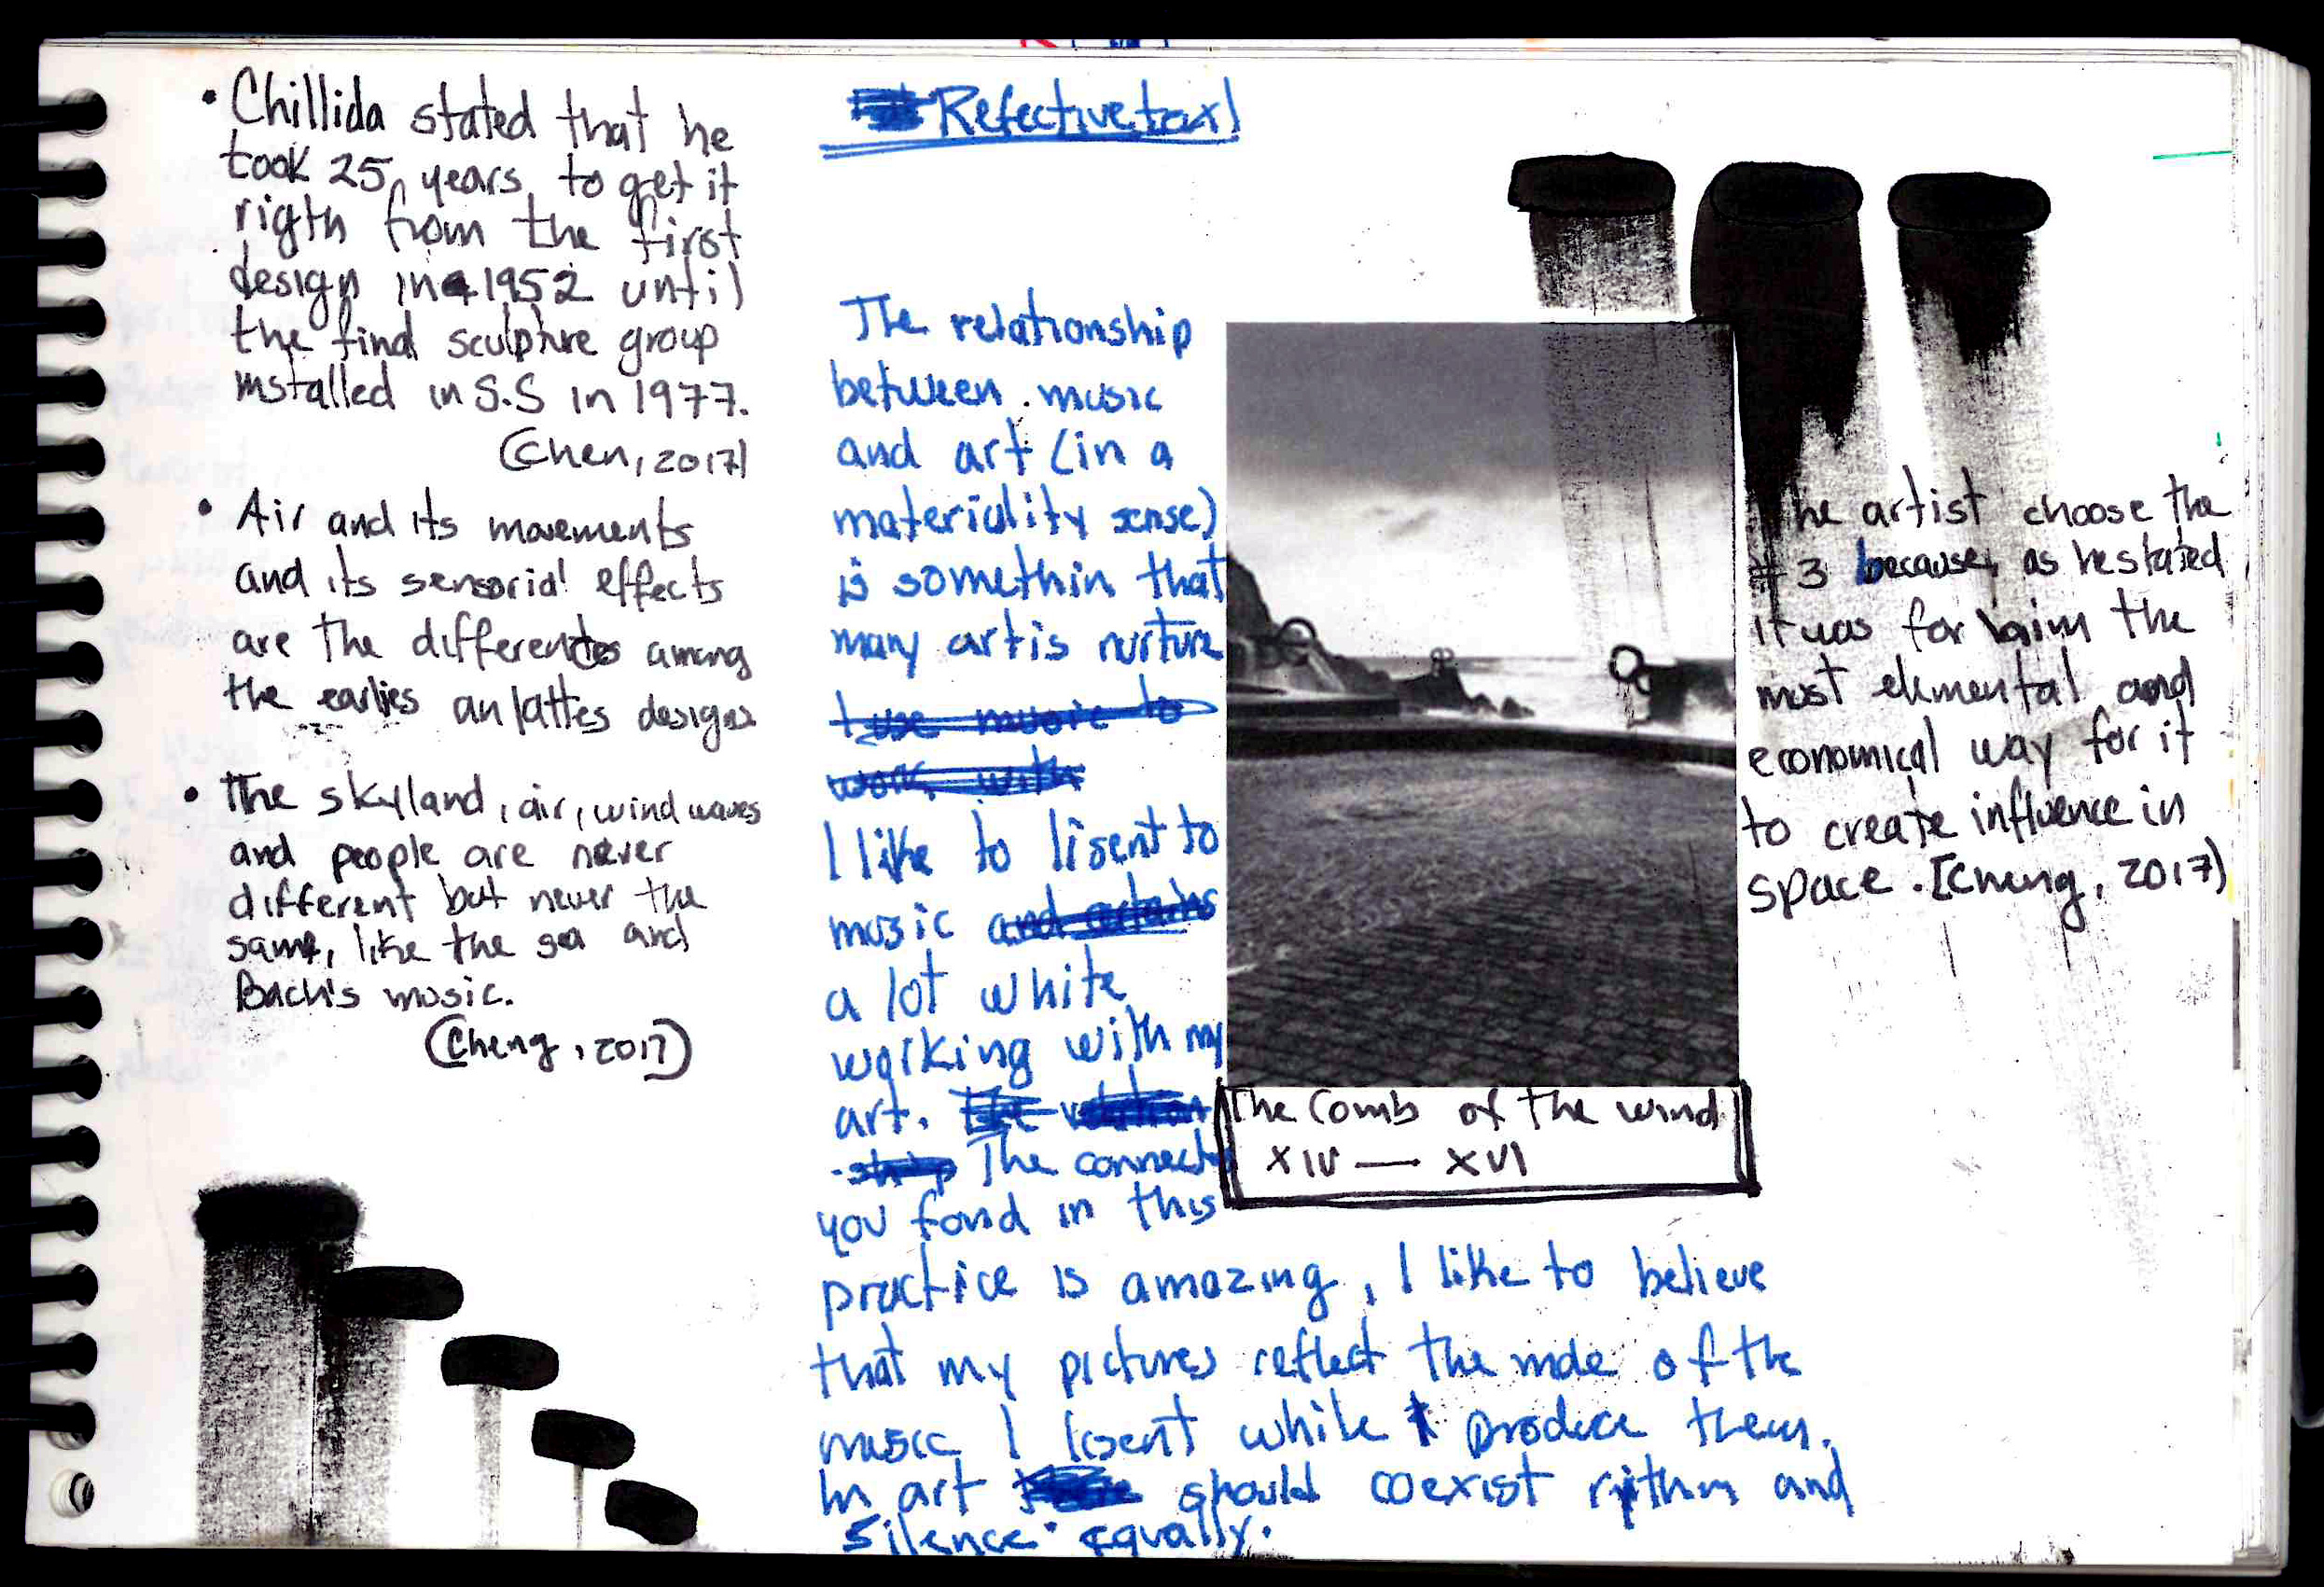 • Chillida stated that he
took 25 years to get it
rigth from the first
design in 1952 until
the final sculpture group
installed in S.S in 1977.
(Chen, 2017)
• Air and its movements
and its sensorial effects
are the differentes among
the earlies an lattes designs
• The skyland, air, wind waves
and people are never
different but never the
same, like the sea and
Bach's music.
(Cheng, 2017)
Refective text
The relationship
between music
and art (in a
materiality sense)
is somethin that
many artis nurture
I use music to
work with
I like to lisent to
music
a lot white
working with my
art. The relation
-ship The connect
you fond in this
practice is amazing, I like to believe
that my pictures reflect the mde of the
music I lisent while I produce them.
In art should coexist rithm and
silence equally.
The Comb of the wind
XIV — XVI
The artist choose the
#3 because, as he stated
it was for him the
most elemental and
economical way for it
to create influence in
space. [Cheng, 2017)